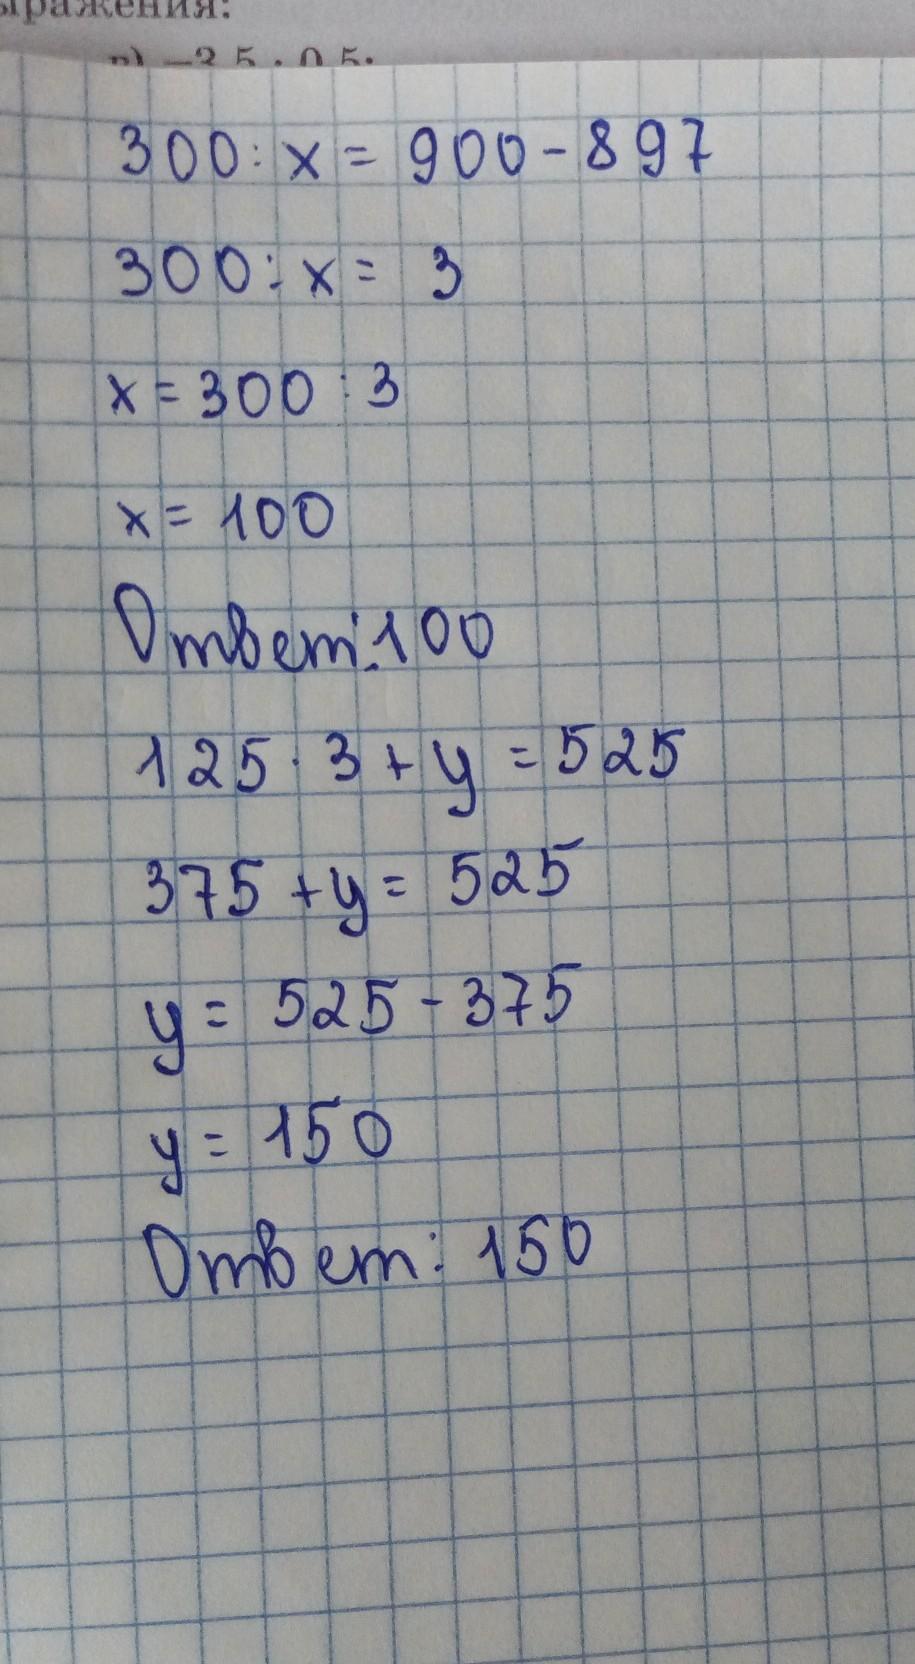 ыражения:
300 : x = 900 - 897
300 : x = 3
x = 300 : 3
x = 100
Ответ: 100
125 · 3 + y = 525
375 + y = 525
y = 525 - 375
y = 150
Ответ: 150